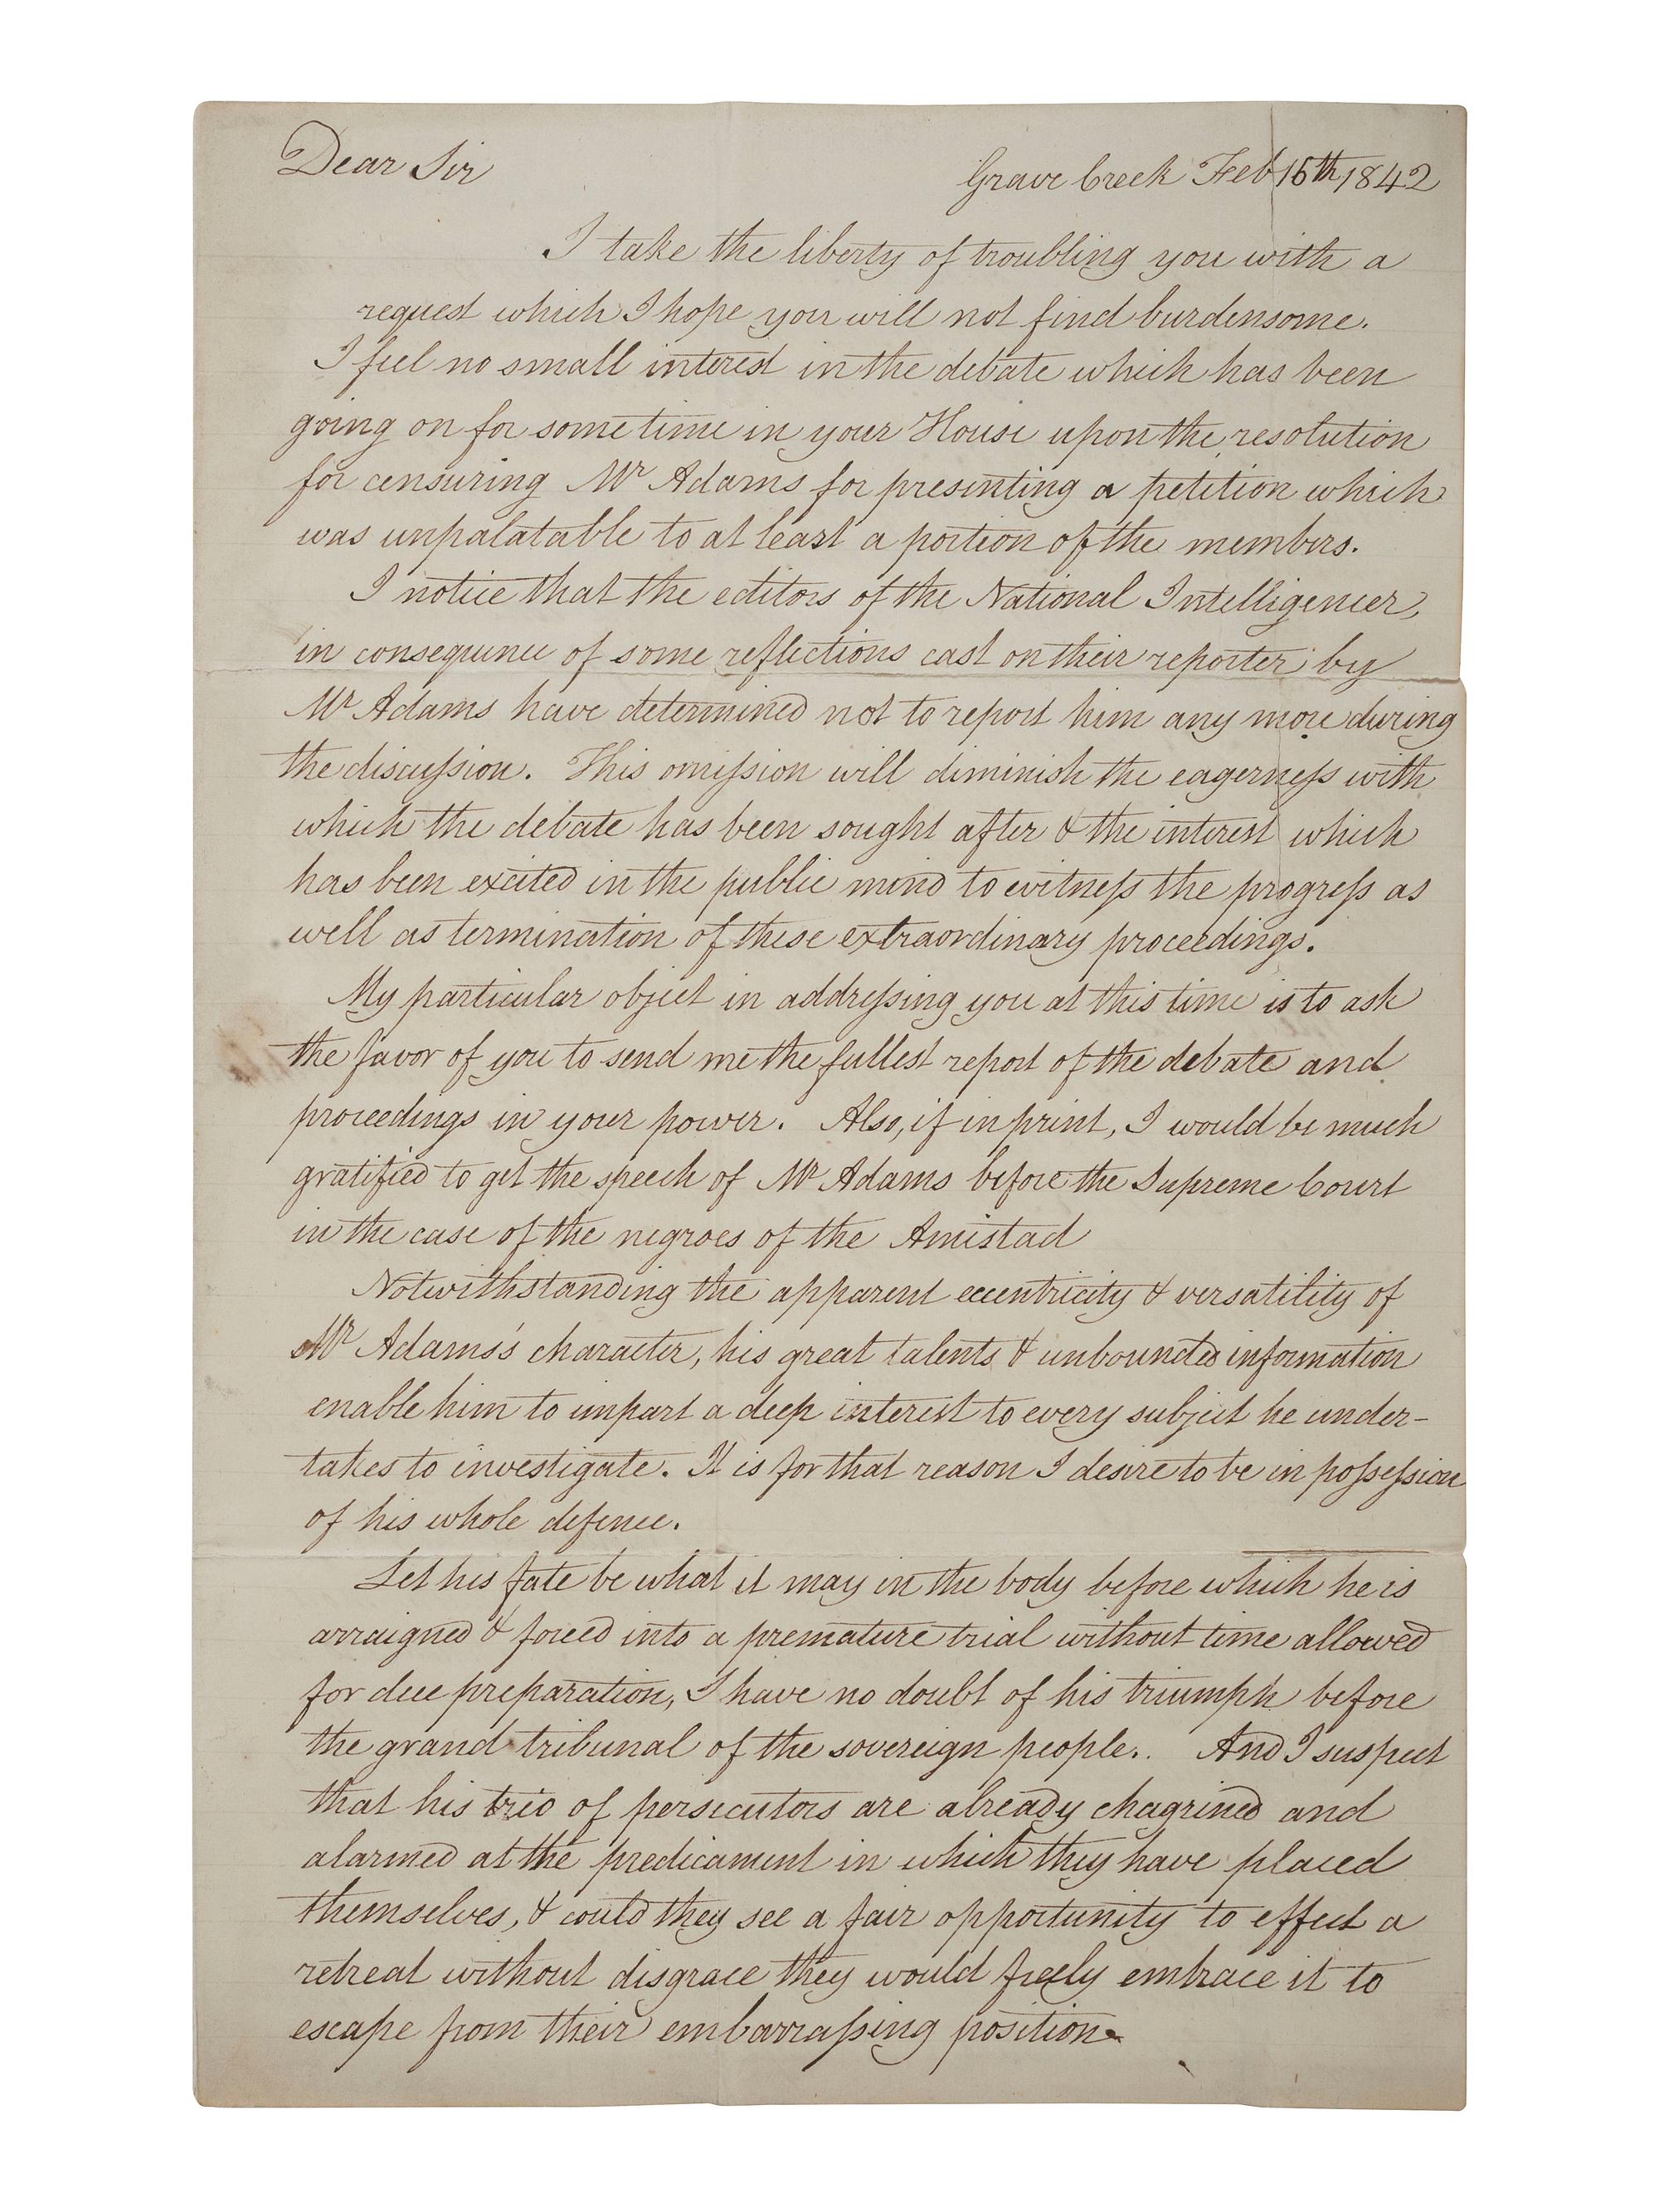 Dear Sir
Grave Creek Feb 15th 1842
I take the liberty of troubling you with a
request which I hope you will not find burdensome.
I feel no small interest in the debate which has been
going on for some time in your House upon the resolution
for censuring Mr Adams for presenting a petition which
was unpalatable to at least a portion of the members.
I notice that the editors of the National Intelligencer,
in consequence of some reflections cast on their reporter by
Mr Adams have determined not to report him any more during
the discussion. This omission will diminish the eagerness with
which the debate has been sought after & the interest which
has been excited in the public mind to witness the progress as
well as termination of these extraordinary proceedings.
My particular object in addressing you at this time is to ask
the favor of you to send me the fullest report of the debate and
proceedings in your power. Also, if in print, I would be much
gratified to get the speech of Mr Adams before the Supreme Court
in the case of the negroes of the Amistad
Notwithstanding the apparent eccentricity & versatility of
Mr Adams's character, his great talents & unbounded information
enable him to impart a deep interest to every subject he under-
takes to investigate. It is for that reason I desire to be in possession
of his whole defence.
Let his fate be what it may in the body before which he is
arraigned & forced into a premature trial without time allowed
for due preparation, I have no doubt of his triumph before
the grand tribunal of the sovereign people. And I suspect
that his trio of persecutors are already chagrined and
alarmed at the predicament in which they have placed
themselves, & could they see a fair opportunity to effect a
retreat without disgrace they would freely embrace it to
escape from their embarrassing position.